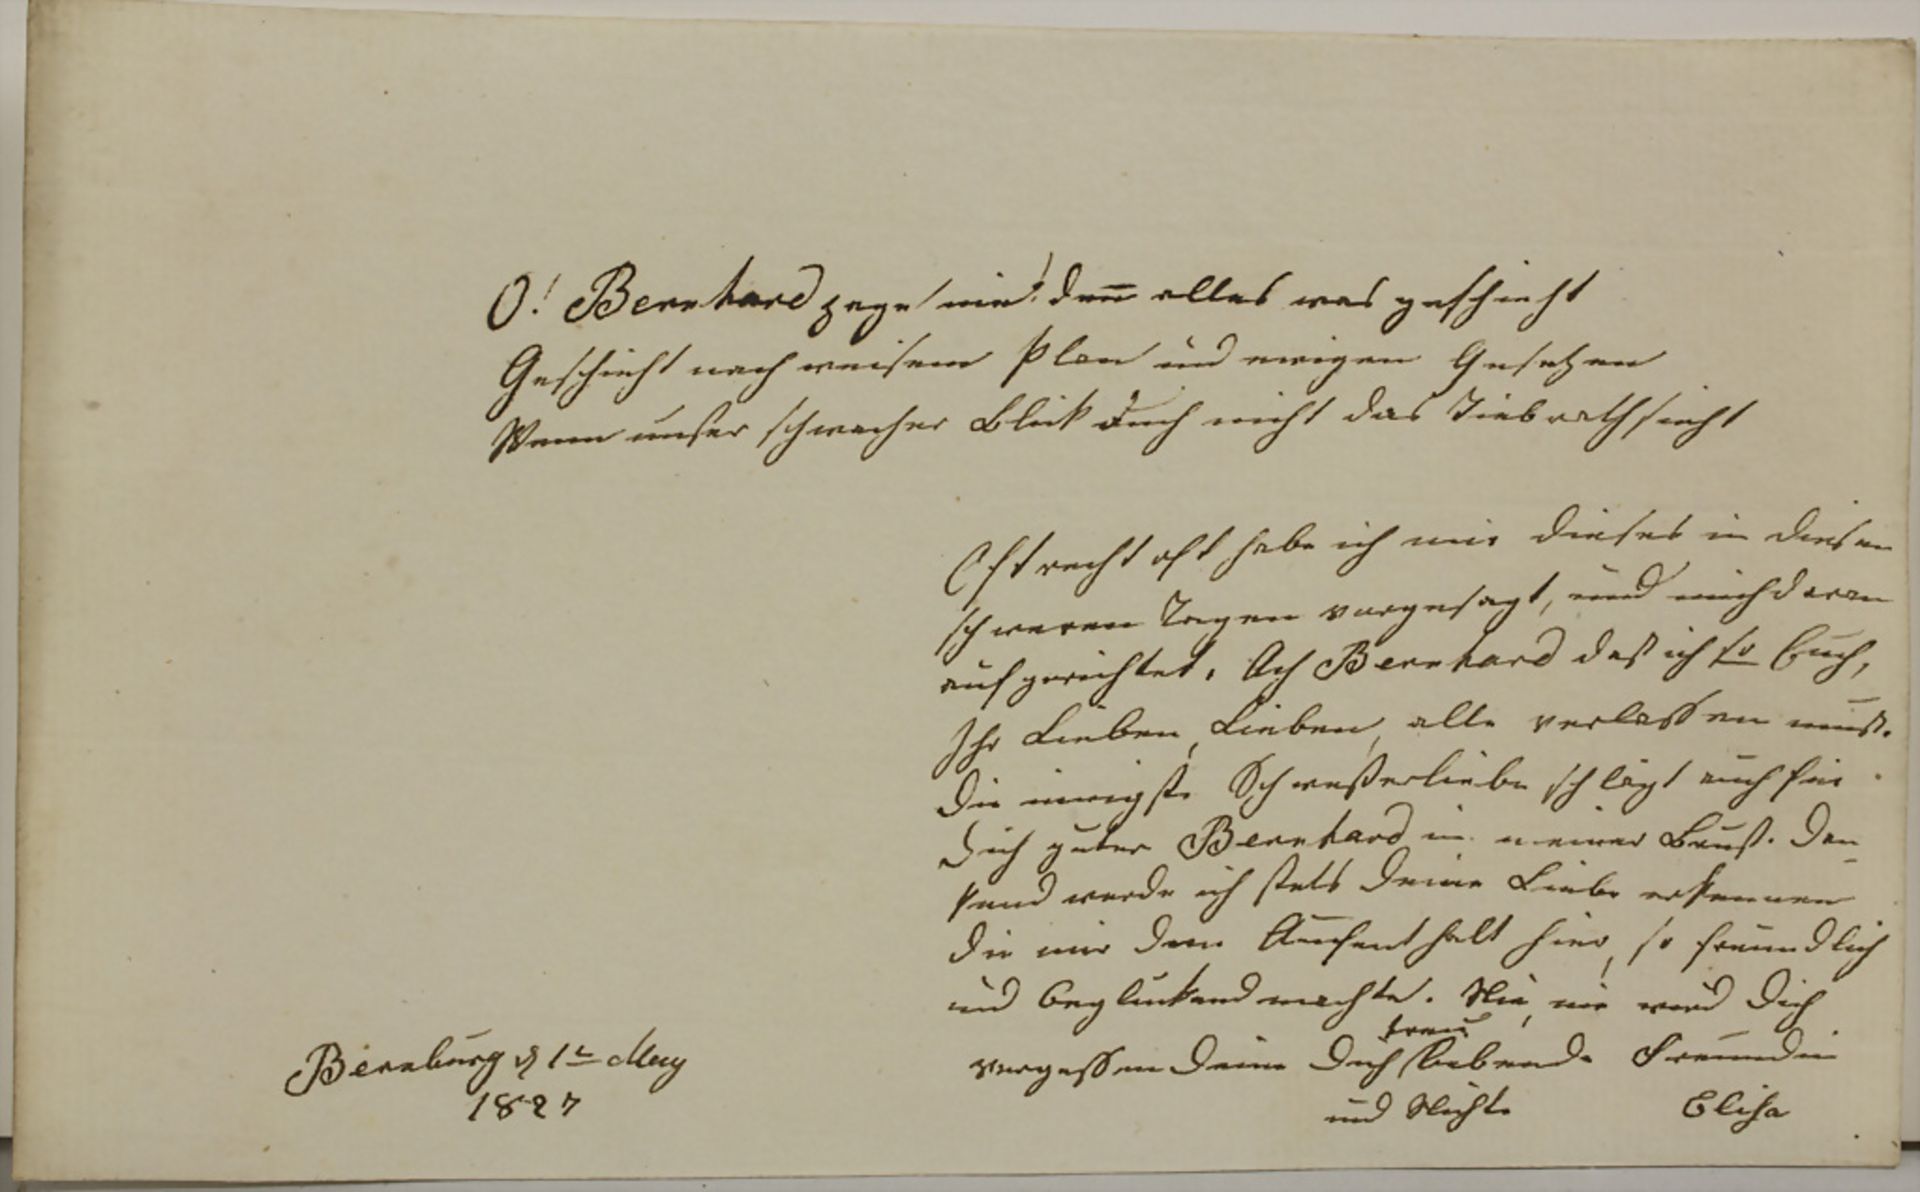 O! Bernhard zage nie! deñ alles was geschieht
Geschieht nach weisem Plan und ewigen Gesetzen
Wenn unser schwacher Blick auch nicht das sieht
Oft recht oft habe ich mir dieses in diesen
schweren Tagen vorgesagt, und mich daran
aufgerichtet. Ach Bernhard daß ich so Euch,
Ihr Lieben, Lieben, alle verlassen muß.
Die innigste Schwesterliebe schlägt auch für
Dich guter Bernhard in meiner Brust. Dan-
kend werde ich stets Deine Liebe erkennen
die mir den Aufenthalt hier, so freundlich
und beglückend machte. Nie, nie wird Dich
vergessen Deine Dich treu liebende Freundin
und Nichte Elisa
Bernburg d 1t May
1827